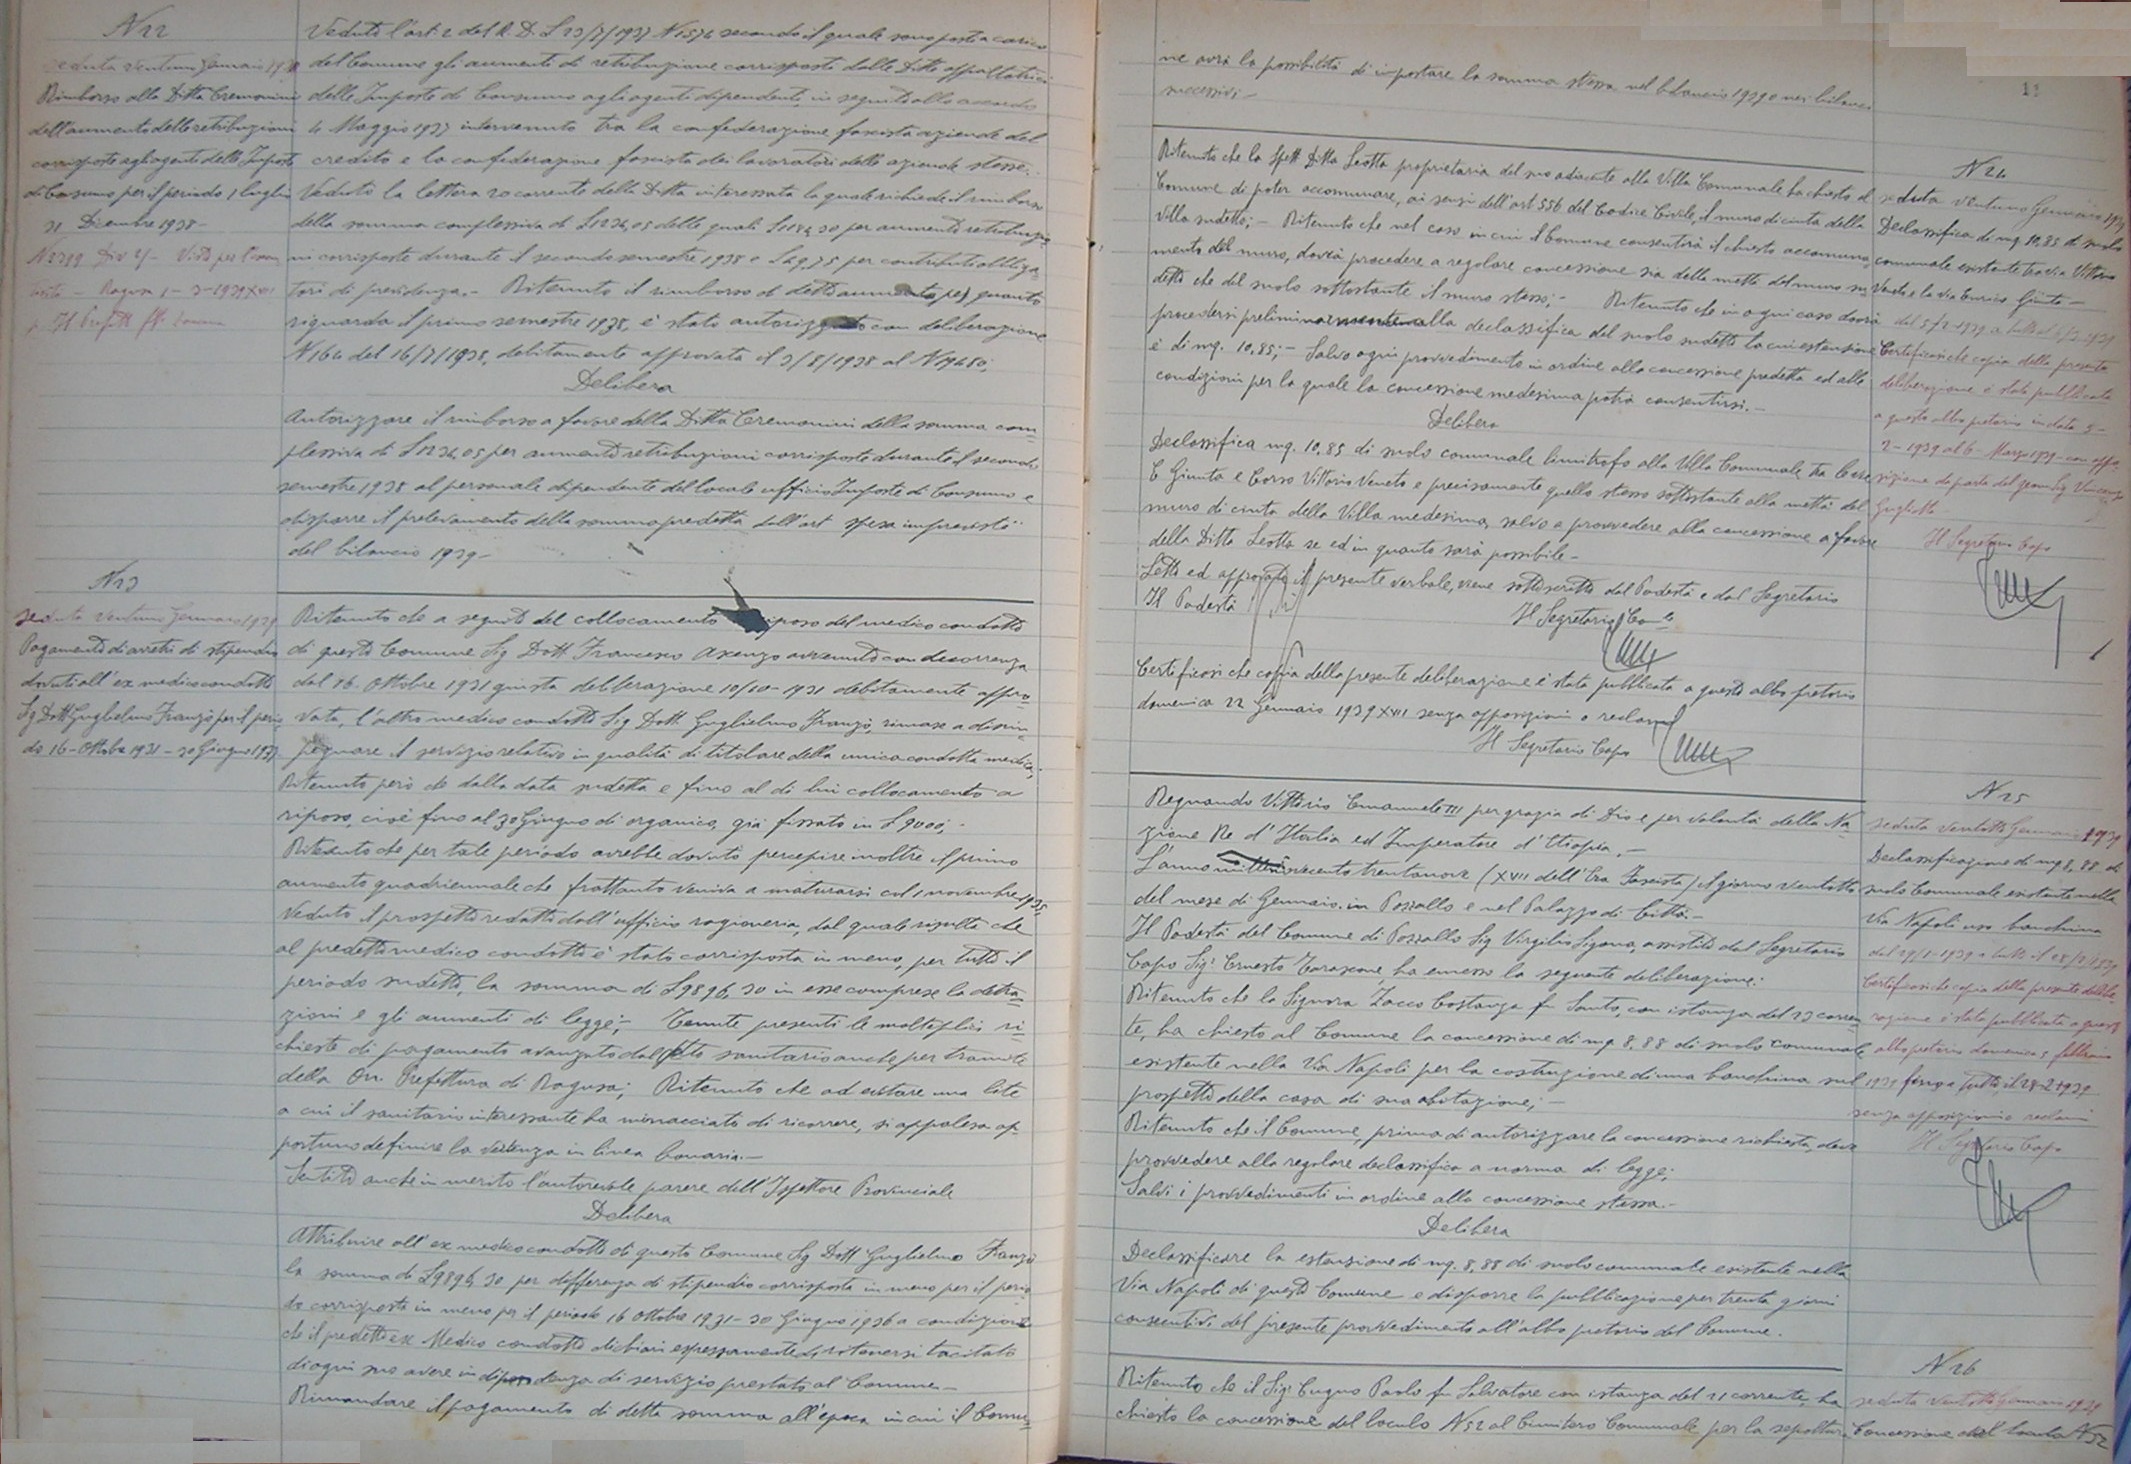 N 22
seduta ventuno Gennaio 1939
Rimborso alla Ditta Cremonini
dell'aumento delle retribuzioni
corrisposte agli agenti delle Imposte
di Consumo per il periodo 1 luglio
31 Dicembre 1938-
Ragusa 1-3-1939 XVII
Veduto l'art. 2 del R. D. L 23/7/1937 N 1576 secondo il quale sono posti a carico
del Comune gli aumenti di retribuzione corrisposti dalle Ditte appaltatrici
delle Imposte di Consumo agli agenti dipendenti, in seguito allo accordo
4 Maggio 1937 intervenuto tra la confederazione fascista aziende del
credito e la confederazione fascista dei lavoratori delle aziende stesse;.
Veduta la lettera 20 corrente della Ditta interessata la quale richiede il rimborso
della somma complessiva di L 1234,05 delle quali L 1184,30 per aumenti retribuzio
ni corrisposte durante il secondo semestre 1938 e L 49,75 per contributi obbliga
tori di previdenza.- Ritenuto il rimborso di detti aumenti per quanto
riguarda il primo semestre 1938, è stato autorizzato con deliberazione
N 164 del 16/7/1938, debitamente approvata il 3/8/1938 al N 19480;
Delibera
Autorizzare il rimborso a favore della Ditta Cremonini della somma com-
plessiva di L 1234,05 per aumenti retribuzioni corrisposte durante il secondo
semestre 1938 al personale dipendente del locale ufficio Imposte di Consumo e
disporre il prelevamento della somma predetta dall'art "spese impreviste"
del bilancio 1939-
N 23
seduta ventuno Gennaio 1939
Pagamento di arretri di stipendio
dovuti all'ex medico condotto
Sig Dott Guglielmo Franzò per il perio
do 16-Ottobre 1931-30 Giugno 1937
Ritenuto che a seguito del collocamento riposo del medico condotto
di questo Comune Sig Dott. Francesco avvenuto con decorrenza
dal 16. Ottobre 1931 giusta deliberazione 10/10-1931 debitamente appro-
vata, l'altro medico condotto Sig Dott. Guglielmo Franzò, rimase a disim-
pegnare il servizio relativo in qualità di titolare della unica condotta medica;
Ritenuto però che dalla data sudetta e fino al di lui collocamento a
riposo, cioè fino al 30 Giugno di organico, già fissato in L 9000;-
Ritenuto che per tale periodo avrebbe dovuto percepire inoltre il primo
aumento quadriennale che frattanto veniva a maturarsi col 1 novembre 1935;
Veduto il prospetto redatto dall'ufficio ragioneria, dal quale risulta che
al predetto medico condotto è stato corrisposta in meno, per tutto il
periodo sudetto, la somma di L 9896,30 in esse comprese le detra-
zioni e gli aumenti di legge;- Tenute presenti le molteplici ri-
chieste di pagamento avanzate dal detto sanitario anche per tramite
della On. Prefettura di Ragusa; Ritenuto che ad evitare una lite
a cui il sanitario interessante ha minacciato di ricorrere, si appalesa op-
portuno definire la vertenza in linea bonaria.-
Sentito anche in merito l'autorevole parere dell'Ispettore Provinciale
Delibera
Attribuire all'ex medico condotto di questo Comune Sig Dott Guglielmo Franzò
la somma di L 9896,30 per differenza di stipendio corrisposta in meno per il perio
do corrisposto in meno per il periodo 16 Ottobre 1931-30 Giugno 1936 a condizione
che il predetto ex Medico condotto dichiari espressamente di ritenersi tacitato
di ogni suo avere in dipendenza di servizio prestato al Comune-
Rimandare il pagamento di detta somma all'epoca in cui il Comu-
11
ne avrà la possibilità di impostare la somma stessa nel bilancio 1939 o nei bilanci
successivi-
Ritenuto che la Spett Ditta Leotta proprietaria del suo adiacente alla Villa Comunale ha chiesto al
Comune di poter accomunare, ai sensi dell'art 556 del Codice Civile, il muro di cinta della
Villa sudetta;- Ritenuto che nel caso in cui il Comune consentirà il chiesto accomuna
mento del muro, dovrà procedere a regolare concessione sia della metà del muro su
detto che del suolo sottostante il muro stesso;- Ritenuto che in ogni caso dovrà
procedersi preliminarmente alla declassifica del suolo sudetto la cui estensione
è di mq. 10,85;- Salvo ogni provvedimento in ordine alla concessione predetta ed alle
condizioni per la quale la concessione medesima potrà consentirsi.-
Delibera
Declassifica mq. 10,85 di suolo comunale limitrofo alla Villa Comunale tra Corso
E Giunta e Corso Vittorio Veneto e precisamente quello stesso sottostante alla metà del
muro di cinta della Villa medesima, salvo a provvedere alla concessione a favore
della Ditta Leotta se ed in quanto sarà possibile-
Letto ed approvato il presente verbale, viene sottoscritto dal Podestà e dal Segretario
Il Podestà
Il Segretario Com.le
Certificasi che copia della presente deliberazione è stata pubblicata a questo albo pretorio
domenica 22 Gennaio 1939 XVII senza opposizioni o reclami
Il Segretario Capo
N 24
seduta ventuno Gennaio 1939
Declassifica di mq 10,85 di suolo
comunale esistente tra via Vittorio
Veneto e la via Enrico Giunta-
dal 5/2-1939 a tutto il 6/3-1939
Certificasi che copia della presente
deliberazione è stata pubblicata
a questo albo pretorio in data 5-
2-1939 al 6-Marzo 1939- con oppo
sizione da parte del
Il Segretario Capo
Regnando Vittorio Emanuele III per grazia di Dio e per volontà della Na
zione Re d'Italia ed Imperatore d'Etiopia.-
L'anno millenovecentotrentanove (XVII dell'Era Fascista) il giorno ventotto
del mese di Gennaio. in Pozzallo e nel Palazzo di Città.-
Il Podestà del Comune di Pozzallo Sig Virgilio Sigona, assistito dal Segretario
Capo Sig: Ernesto Tarascone, ha emesso la seguente deliberazione:
Ritenuto che la Signora Zacco Costanza fu Santo, con istanza del 23 corren-
te, ha chiesto al Comune la concessione di mq 8,88 di suolo comunale
esistente nella Via Napoli per la costruzione di una banchina sul
prospetto della casa di sua abitazione;-
Ritenuto che il Comune, prima di autorizzare la concessione richiesta, deve
provvedere alla regolare declassifica a norma di legge;
Salvi i provvedimenti in ordine alla concessione stessa.-
Delibera
Declassificare la estensione di mq. 8,88 di suolo comunale esistente nella
Via Napoli di questo Comune e disporre la pubblicazione per trenta giorni
consecutivi del presente provvedimento all'albo pretorio del Comune.
N 25
seduta ventotto Gennaio 1939
Declassificazione di mq 8,88 di
suolo Comunale esistente nella
Via Napoli uso banchina
dal 29/1-1939 a tutto il 28/2/1939
Certificasi che copia della presente delibe
razione è stata pubblicata a questo
albo pretorio domenica 5 febbraio
1939 fino a tutto il 28-2-1939
senza opposizioni o reclami
Il Segretario Capo
Ritenuto che il Sig: Eugno Paolo fu Salvatore con istanza del 21 corrente, ha
chiesto la concessione del loculo N 52 al Cimitero Comunale per la sepoltura
N 26
seduta ventotto Gennaio 1939
Concessione del loculo N 52